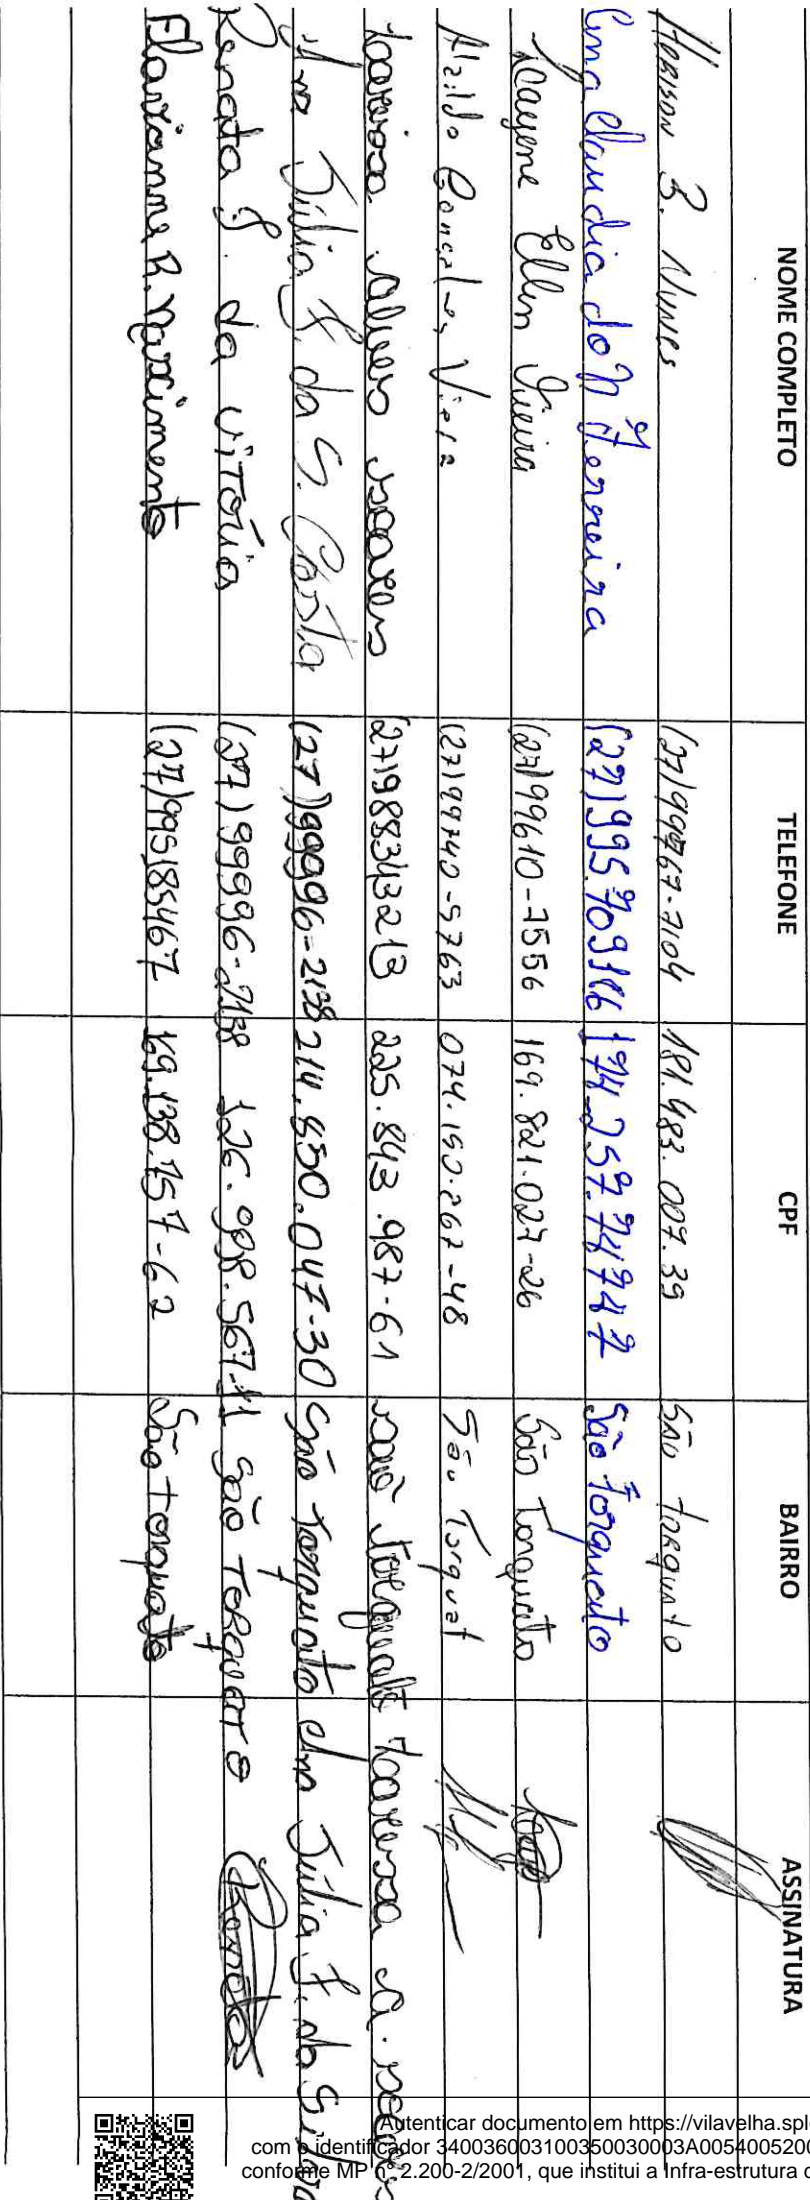 NOME COMPLETO TELEFONE CPF BAIRRO ASSINATURA
B. Nunes (27) 99767-7104 181.483.007.39 São Torquato
Ana Claudia do N Ferreira (27) 995709166 174.257.74747 São Torquato
Kayene Ellen Vieira (27) 99610-7556 169.821.027-26 São Torquato
Alzildo Goncalves Vieira (27) 99740-5763 074.150.267-48 São Torquat
Larissa Alves Soares (27) 988343213 225.843.987-61 São Torquato Larissa A. Soares
Ana Júlia F. da S. Costa (27) 99996-2138 214.550.047-30 São Torquato Ana Júlia F. da Silva
Renata F. da Vitória (27) 99996-2138 126.998.567.11 São Torquato Renata
Flavianne R. Nascimento (27) 995185467 São Torquato
Autenticar documento em https://vilavelha.spl
com o identificador 340036003100350030003A0054005200
conforme MP nº 2.200-2/2001, que institui a Infra-estrutura